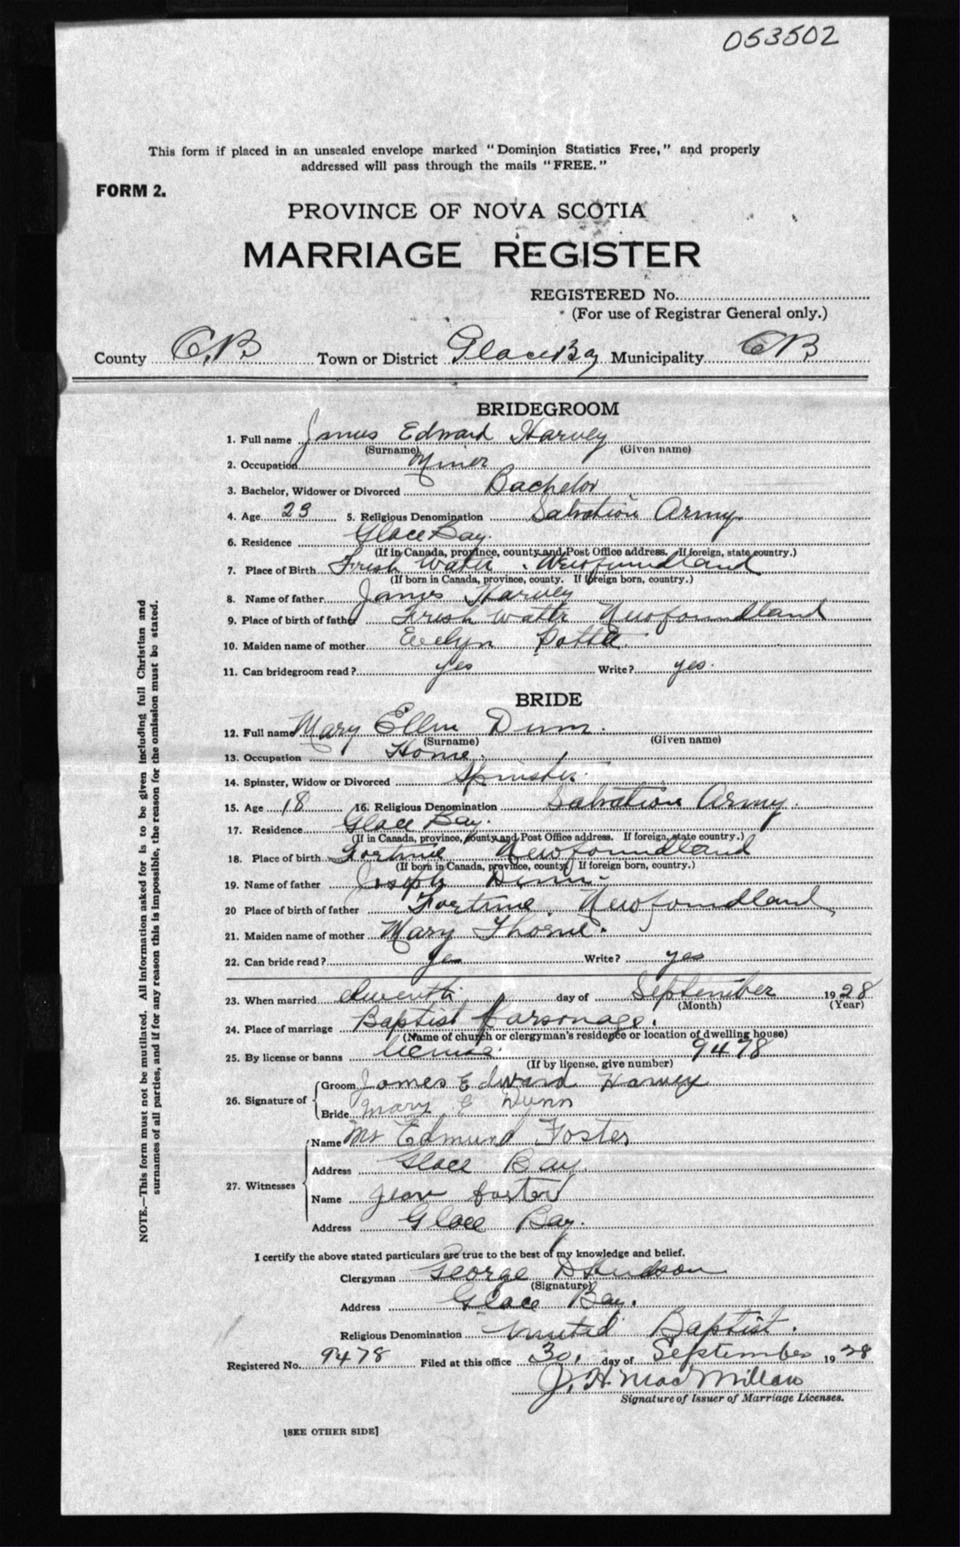 053502
This form if placed in an unsealed envelope marked "Dominion Statistics Free," and properly
addressed will pass through the mails "FREE."
FORM 2.
PROVINCE OF NOVA SCOTIA
MARRIAGE REGISTER
REGISTERED No.
(For use of Registrar General only.)
County C.B Town or District Glace Bay Municipality CB
BRIDEGROOM
1. Full name James Edward Harvey
(Surname) (Given name)
2. Occupation Miner
3. Bachelor, Widower or Divorced Bachelor
4. Age 23 5. Religious Denomination Salvation Army
6. Residence Glace Bay.
(If in Canada, province, county and Post Office address. If foreign, state country.)
7. Place of Birth Fresh Water, Newfoundland
(If born in Canada, province, county. If foreign born, country.)
8. Name of father James Harvey
9. Place of birth of father Fresh Water Newfoundland
10. Maiden name of mother Evelyn
11. Can bridegroom read? yes Write? yes.
BRIDE
12. Full name Mary Ellen Dunn.
(Surname) (Given name)
13. Occupation Home.
14. Spinster, Widow or Divorced Spinster.
15. Age 18 16. Religious Denomination Salvation Army.
17. Residence Glace Bay.
(If in Canada, province, county and Post Office address. If foreign, state country.)
18. Place of birth Fortune Newfoundland
(If born in Canada, province, county. If foreign born, country.)
19. Name of father Joseph Dunn.
20 Place of birth of father Fortune, Newfoundland
21. Maiden name of mother Mary Thorne.
22. Can bride read? yes Write? yes
23. When married day of September 1928
(Month) (Year)
24. Place of marriage Baptist Parsonage.
(Name of church or clergyman's residence or location of dwelling house)
25. By license or banns license 9478
(If by license, give number)
26. Signature of Groom James Edward Harvey
Bride Mary E Dunn
27. Witnesses Name Mr Edmund Foster
Address Glace Bay.
Name Jean Foster
Address Glace Bay.
I certify the above stated particulars are true to the best of my knowledge and belief.
Clergyman George D Hudson
(Signature)
Address Glace Bay.
Religious Denomination United Baptist.
Registered No. 9478 Filed at this office 30, day of September 1928
J. H. MacMillan
Signature of Issuer of Marriage Licenses.
[SEE OTHER SIDE]
NOTE.—This form must not be mutilated. All information asked for is to be given including full Christian and
surnames of all parties, and if for any reason this is impossible, the reason for the omission must be stated.